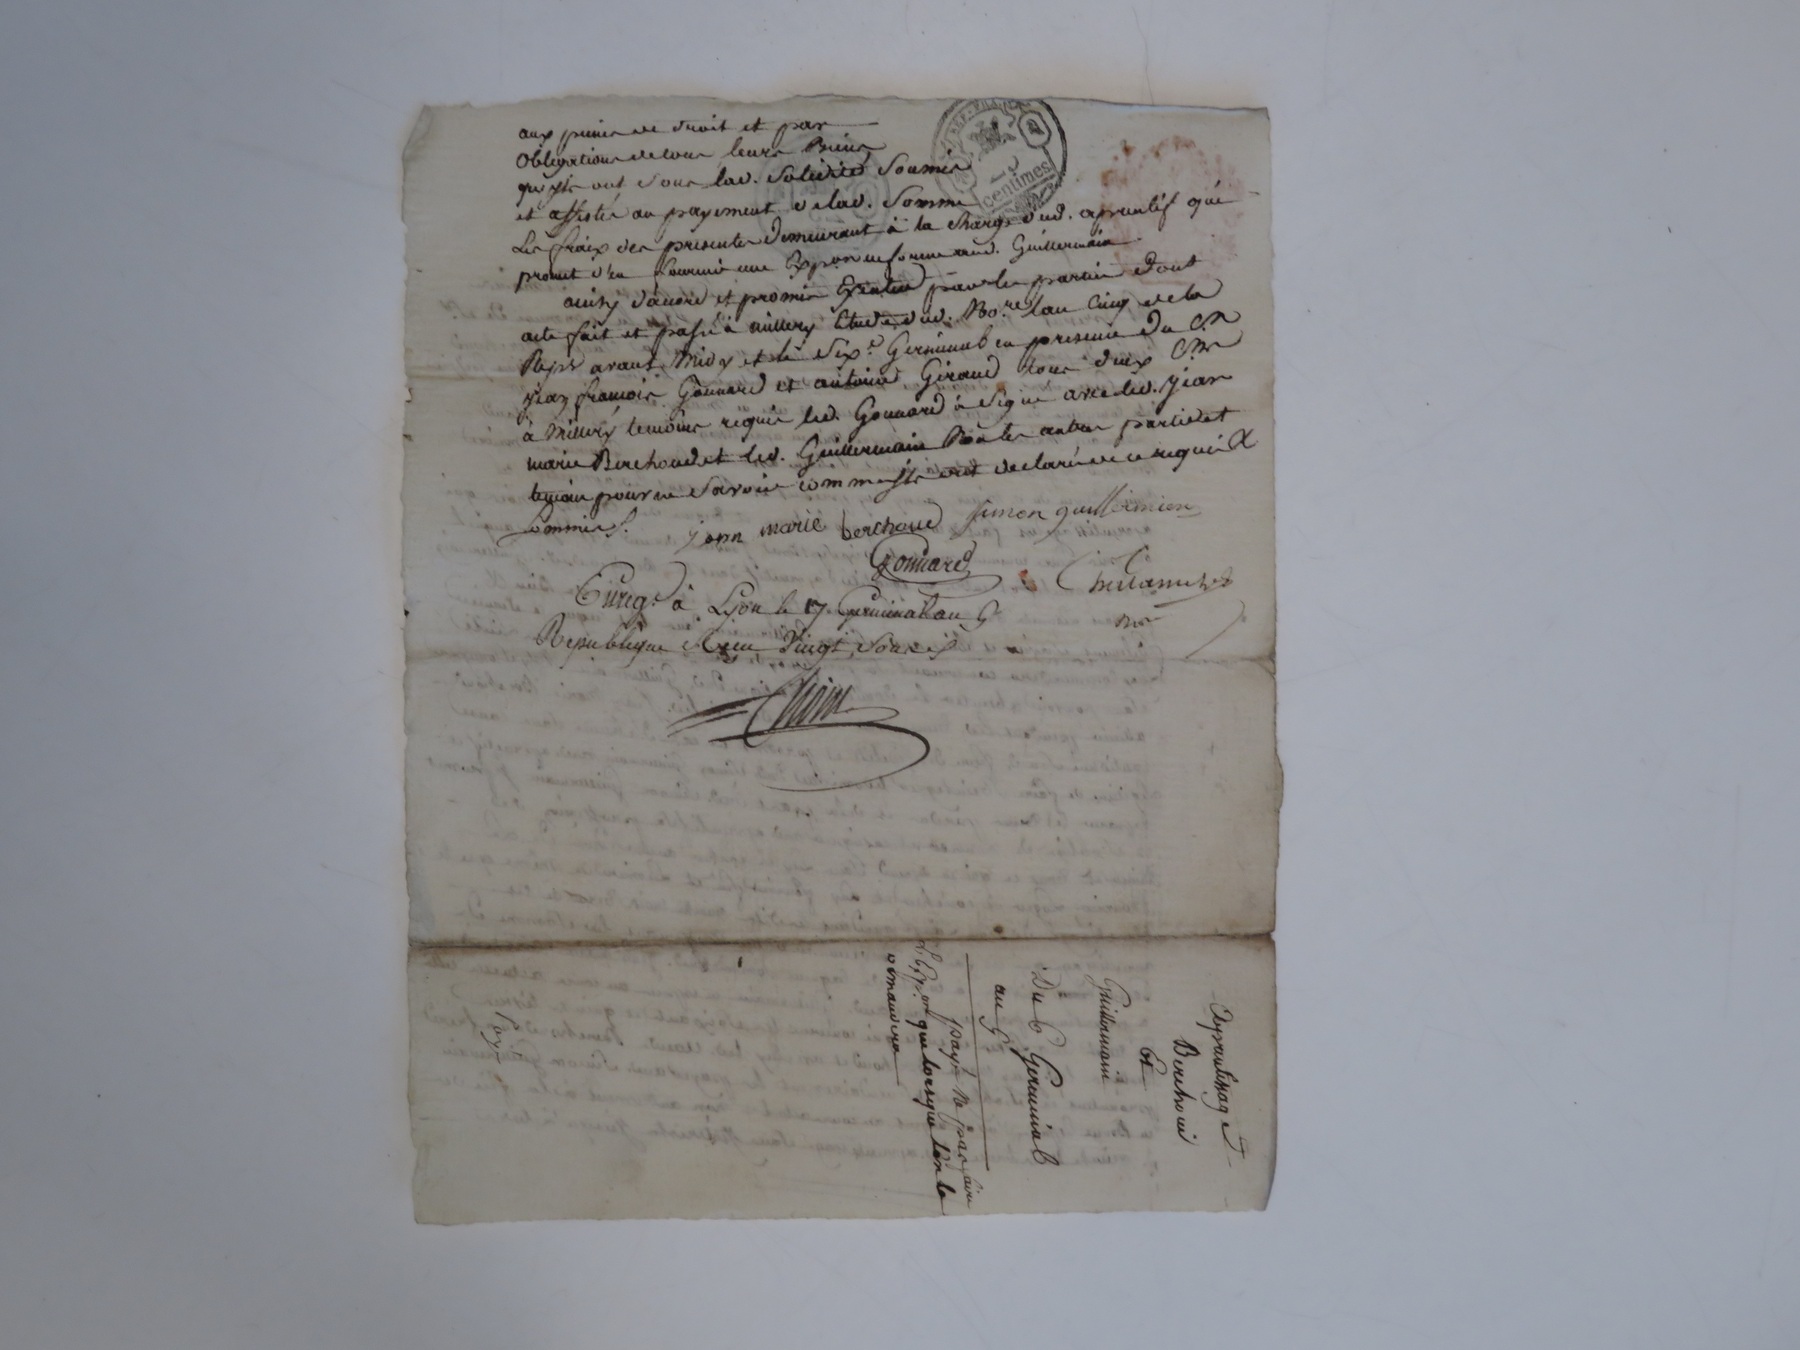 aux peines de droit et par
Obligations de tous leurs Biens
qu'yls ont sous lad. Solidité Soumis
et affectés au payement de lad. Somme
Les fraix des présentes demeurant à la charge dud. aprentif qui
promet d'en fournir une Expon en forme aud. Guillermain
ainsy d'acord et promis par les parties dont
acte fait et passé à millery Etude dud. No.re l'an Cinq de la
Repub avant Midy et le Six.e Germinal en presence du Cn
jean françois Gonnard et antoine Giraud tous deux
à Millery temoins requis led. Gonnard à Signé avec led. jean
marie Berchoud et led. Guillermain Non les autres parties et
temoin pour ne Savoir comme yls ont declaré de ce requis &
Sommés.
jean marie berchoud Simon guillermien
Gonnard
Enreg. à Lyon le 17. Germinal an 5
Republique Reçu Vingt Sous
centimes
Aprentissage
Berthoud
Et
Guillermain
Du 6 Germinal
an 5
payé Ne pas faire
L'Exp.on que lorsqu'on la
demandera
Payé